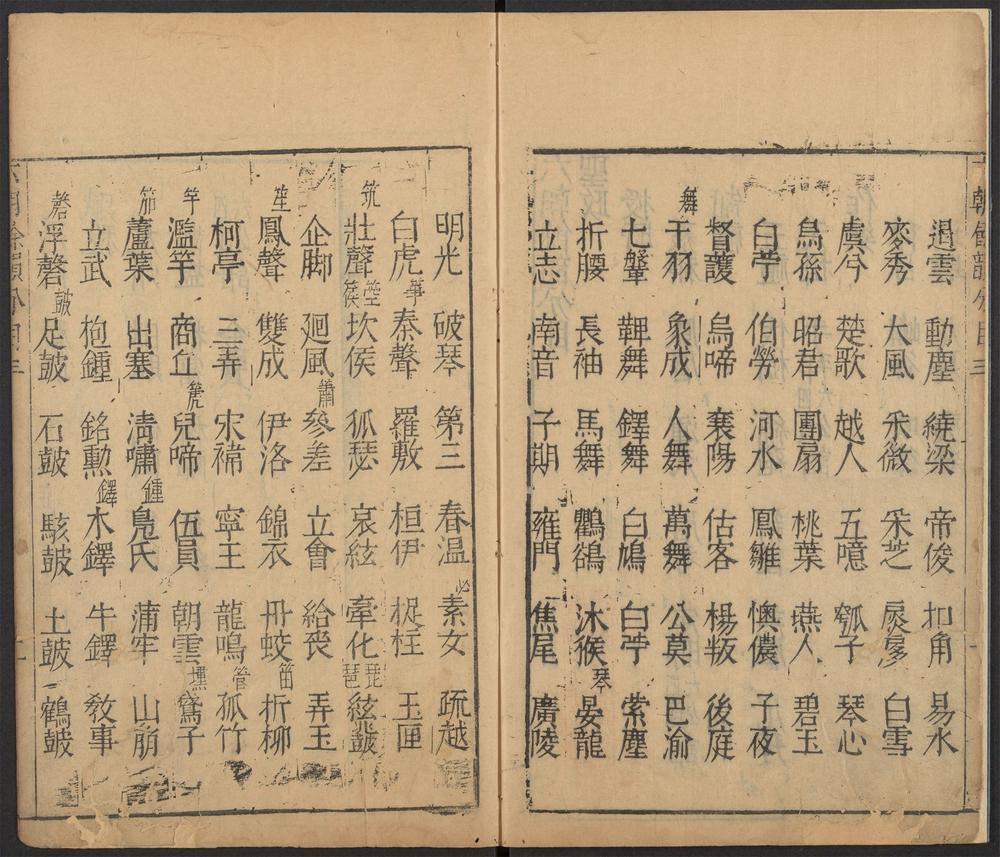 遏雲 動塵 繞梁 帝俊 扣角 易水
麥秀 大風 采薇 采芝 扊扅 白雪
虞兮 楚歌 越人 五噫 瓠子 琴心
烏孫 昭君 團扇 桃葉 燕人 碧玉
白苧 伯勞 河水 鳳雛 懊儂 子夜
督護 烏啼 襄陽 估客 楊叛 後庭
舞 干羽 象成 人舞 萬舞 公莫 巴渝
七鞶 鞞舞 鐸舞 白鳩 白苧 縈塵
折腰 長袖 馬舞 鸜鵒 沐猴 琴 晏龍
立志 南音 子期 雍門 焦尾 廣陵
明光 破琴 第三 春溫 必 素女 疏越
白虎 箏 秦聲 羅敷 桓伊 捉柱 玉匣
筑 壯聲 箜篌 坎侯 狐瑟 哀絃 牽化 琵琶 絃鼗
企脚 廻風 簫 參差 立會 給喪 弄玉
笙 鳳聲 雙成 伊洛 錦衣 冊蛟 笛 折柳
柯亭 三弄 宋褘 寧王 龍鳴 管 孤竹
竽 濫竽 商丘 篪 兒啼 伍員 朝雲 壎 驚子
笳 蘆葉 出塞 清嘯 鍾 鳧氏 蒲牢 山崩
立武 枹鍾 銘勲 鐸 木鐸 牛鐸 敎事
磬 浮磬 皷 足皷 石皷 駭皷 土皷 鶴皷